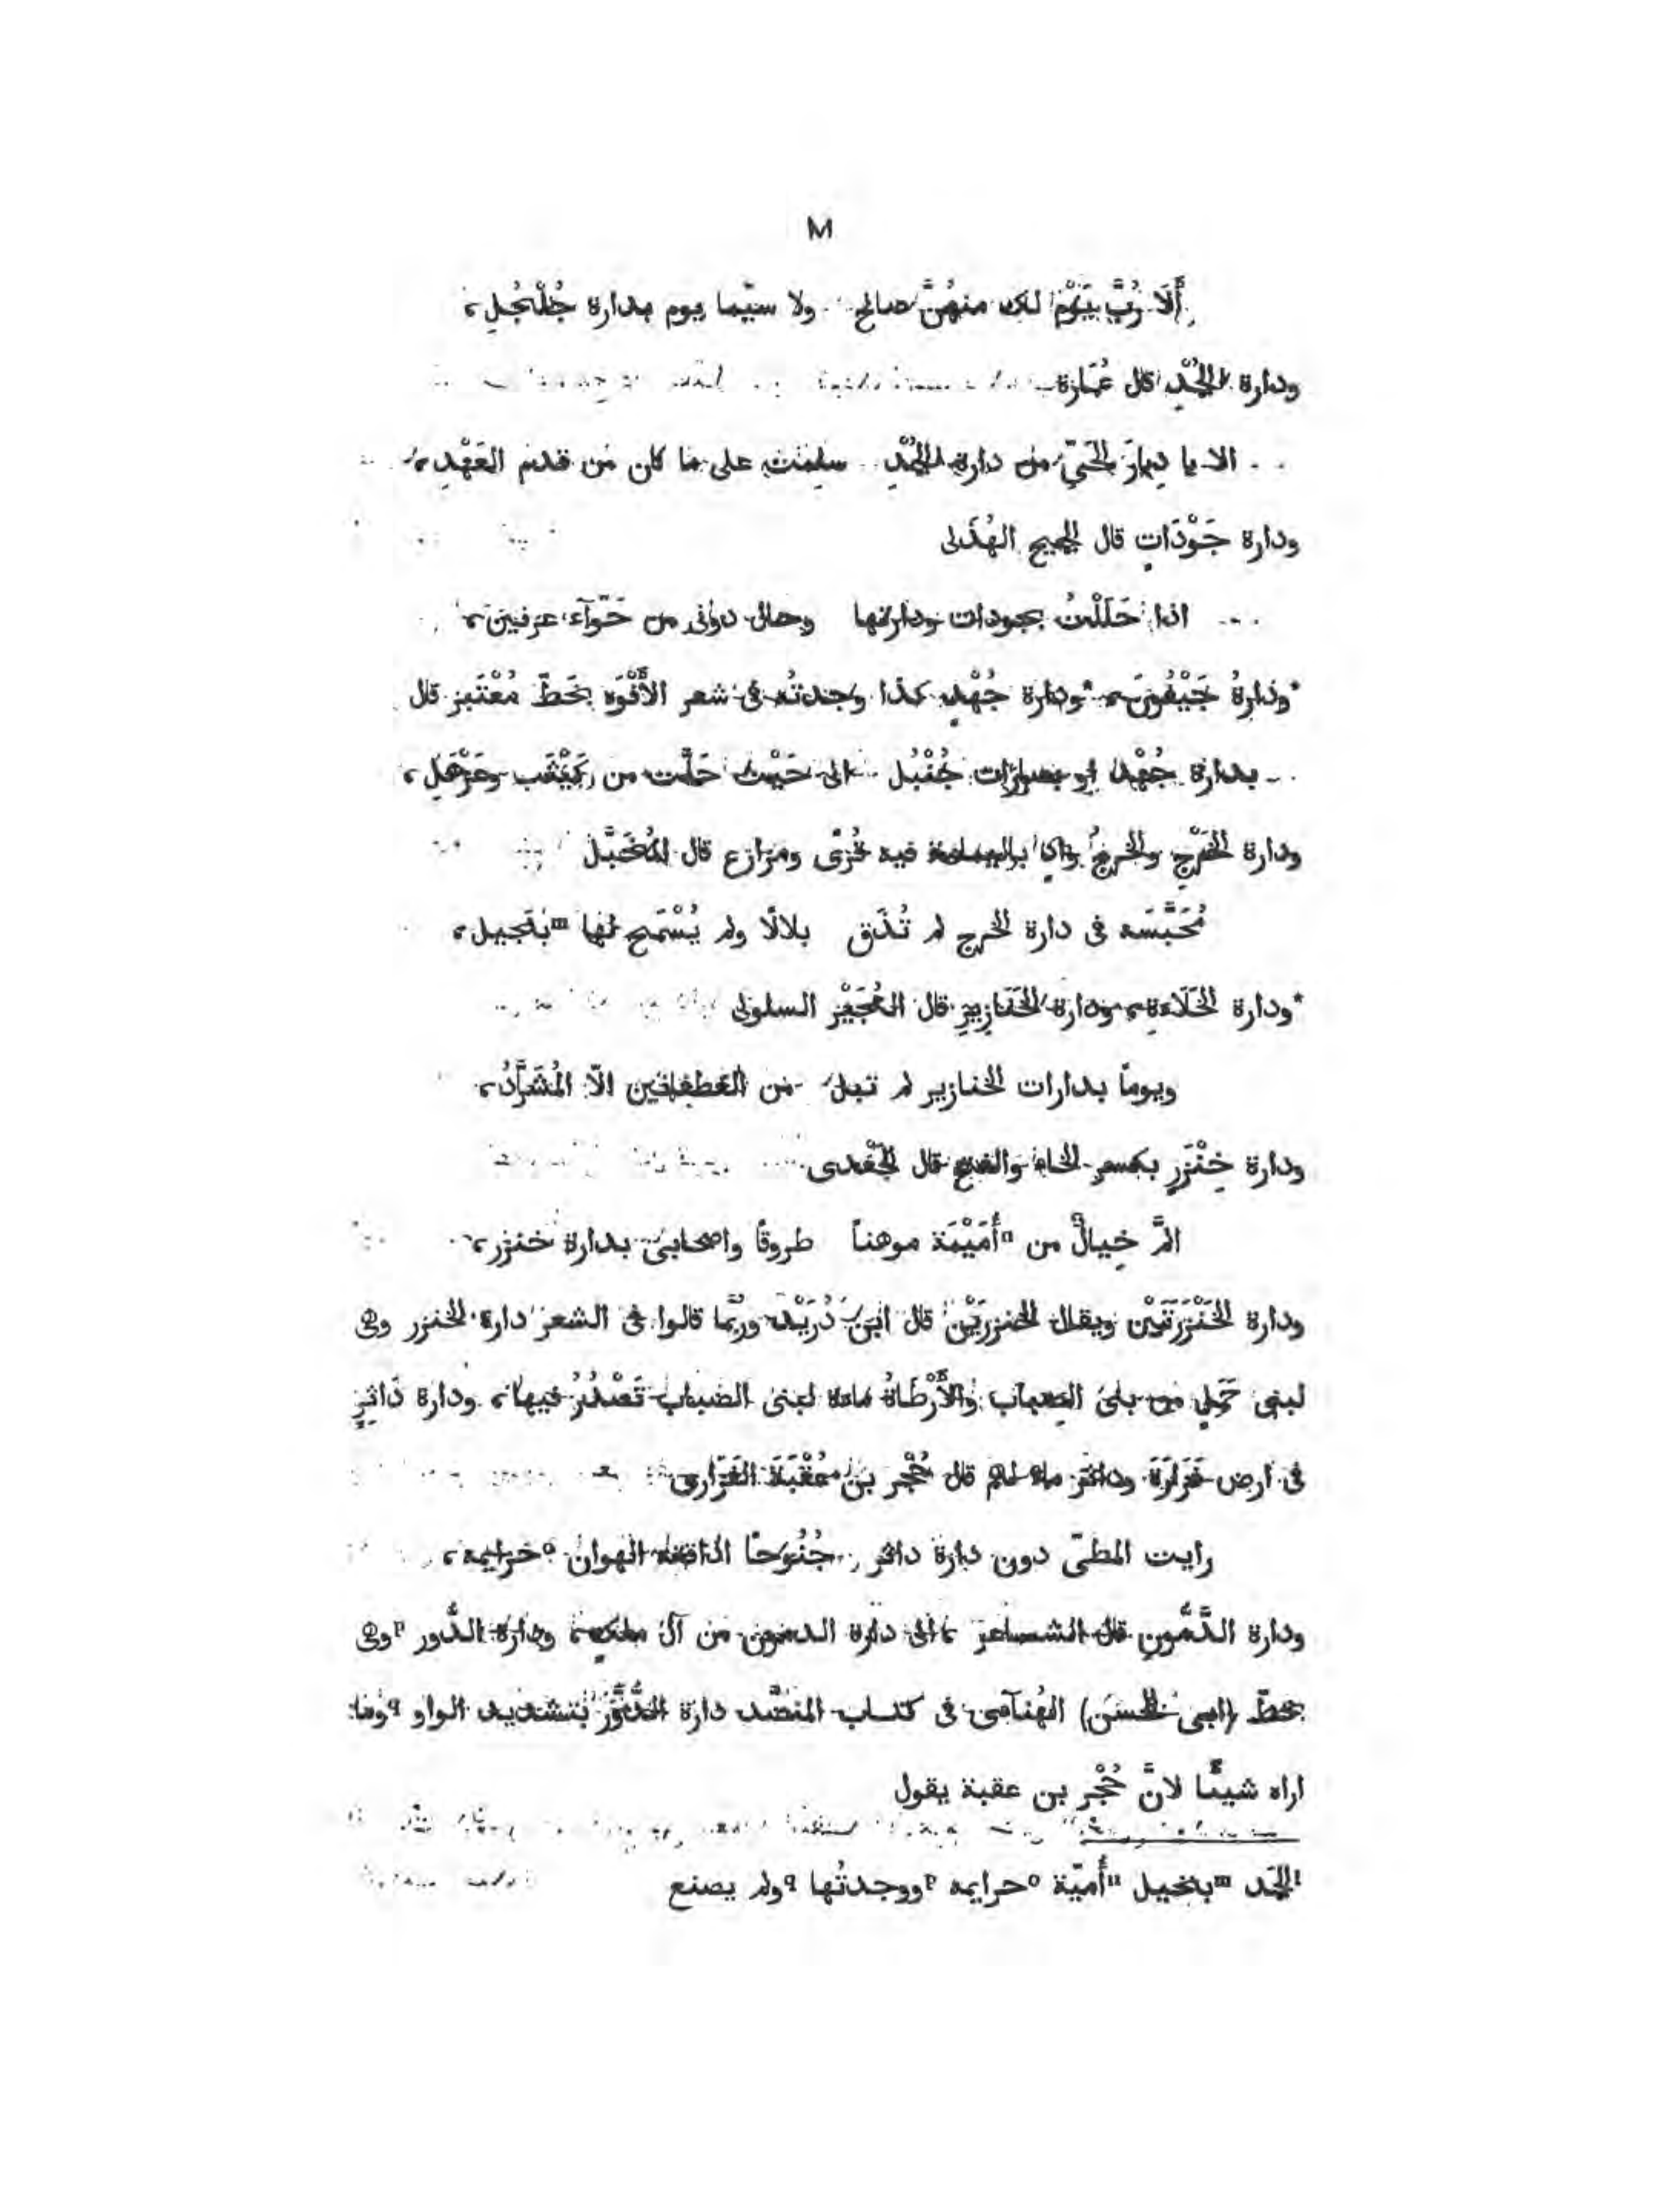 ١٧١
أَلَا رُبَّ يَوْم لك منهُنَّ صالح ولا سيّما يوم بدارة جُلْجُلِ،
ودارة الجُمْدِ قال عُمَارة
الا يا ديارَ الحَيّ من دارة الجُمْدِ سلمت على ما كان من قدم العَهْدِ،
ودارة جَوْدَاتٍ قال الجميح الهُذَلى
اذا حَلَلْتُ بجودات ودارتها وحال دونى من حَوّآء عرنين،
*ودارةُ جَيْفُونَ، *ودارة جُهْدٍ كذا وجدتُه فى شعر الأَفْوَه بخَطّ مُعْتَبر قال
بدارة جُهْد او بصارات جُنْبُل الى حَيْث حَلَّت من كَثِيب وعَزْهَلِ،
ودارة الخَرْجِ والخرجُ وادٍ باليمامة فيه قُرًى ومزارع قال المُخَبَّل
مُحَبَّسَه فى دارة الخرج لم تُذَق بلالًا ولم يُسْمَح لها ᵐبنجيل،
*ودارة الخَلَاءةِ، ودارة الخَنَازِيرِ قال العُجَيْر السلولى
ويوماً بدارات الخنازير لم تبل من الغطفانيين الّا المُشَرَّدُ،
ودارة خِنْزَرٍ بكسر الخاء والفتح قال الجَعْدى
المَّ خيالٌ من ⁿأُمَيْمَة موهناً طروقًا واصحابى بدارة خنزر،
ودارة الخَنْزَرَتَيْن ويقال الخنزرَيْن قال ابن دُرَيْد وربَّما قالوا فى الشعر دارة الخنزر وهى
لبنى حَمَلٍ من بنى الضباب والأَرْطَاةُ ماءة لبنى الضباب تَصْدُرُ فيها، ودارة دَاثِرٍ
فى ارض فَزَارَةَ وداثر ماء لهم قال حُجْر بن عُقْبَةَ الفَزَارى
رايت المطىّ دون دارة داثر جُنُوحًا اذاقته الهوان ᵒخزايمه،
ودارة الدَّمُّونِ قال الشاعر ، الى دارة الدمون من آل مالكٍ، ودارة الدُّور ᵖوهى
بخطّ (ابى الحسن) الهُنآمى فى كتاب المنضَّد دارة الدُّوَّر بتشديد الواو ᑫوما
اراه شيئًا لانَّ حُجْر بن عقبة يقول
ˡالجَمَد ᵐبنخيل ⁿأُميّة ᵒحرايمه ᵖووجدتُها ᑫولم يصنع